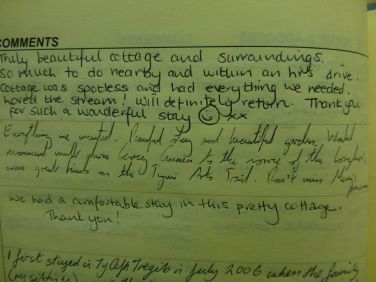 COMMENTS
Truly beautiful cottage and surroundings.
So much to do nearby and within an hrs drive.
Cottage was spotless and had everything we needed.
Loved the stream! Will definitely return. Thank you
for such a wonderful stay ☺ xx
Everything we wanted. Peaceful stay and beautiful garden. Would
recommend to the of the
some great on the Tywi Arts Trail. Don't miss
We had a comfortable stay in this pretty cottage.
Thank you!
I first stayed in Ty Cefn Tregib in July 2006 when the family